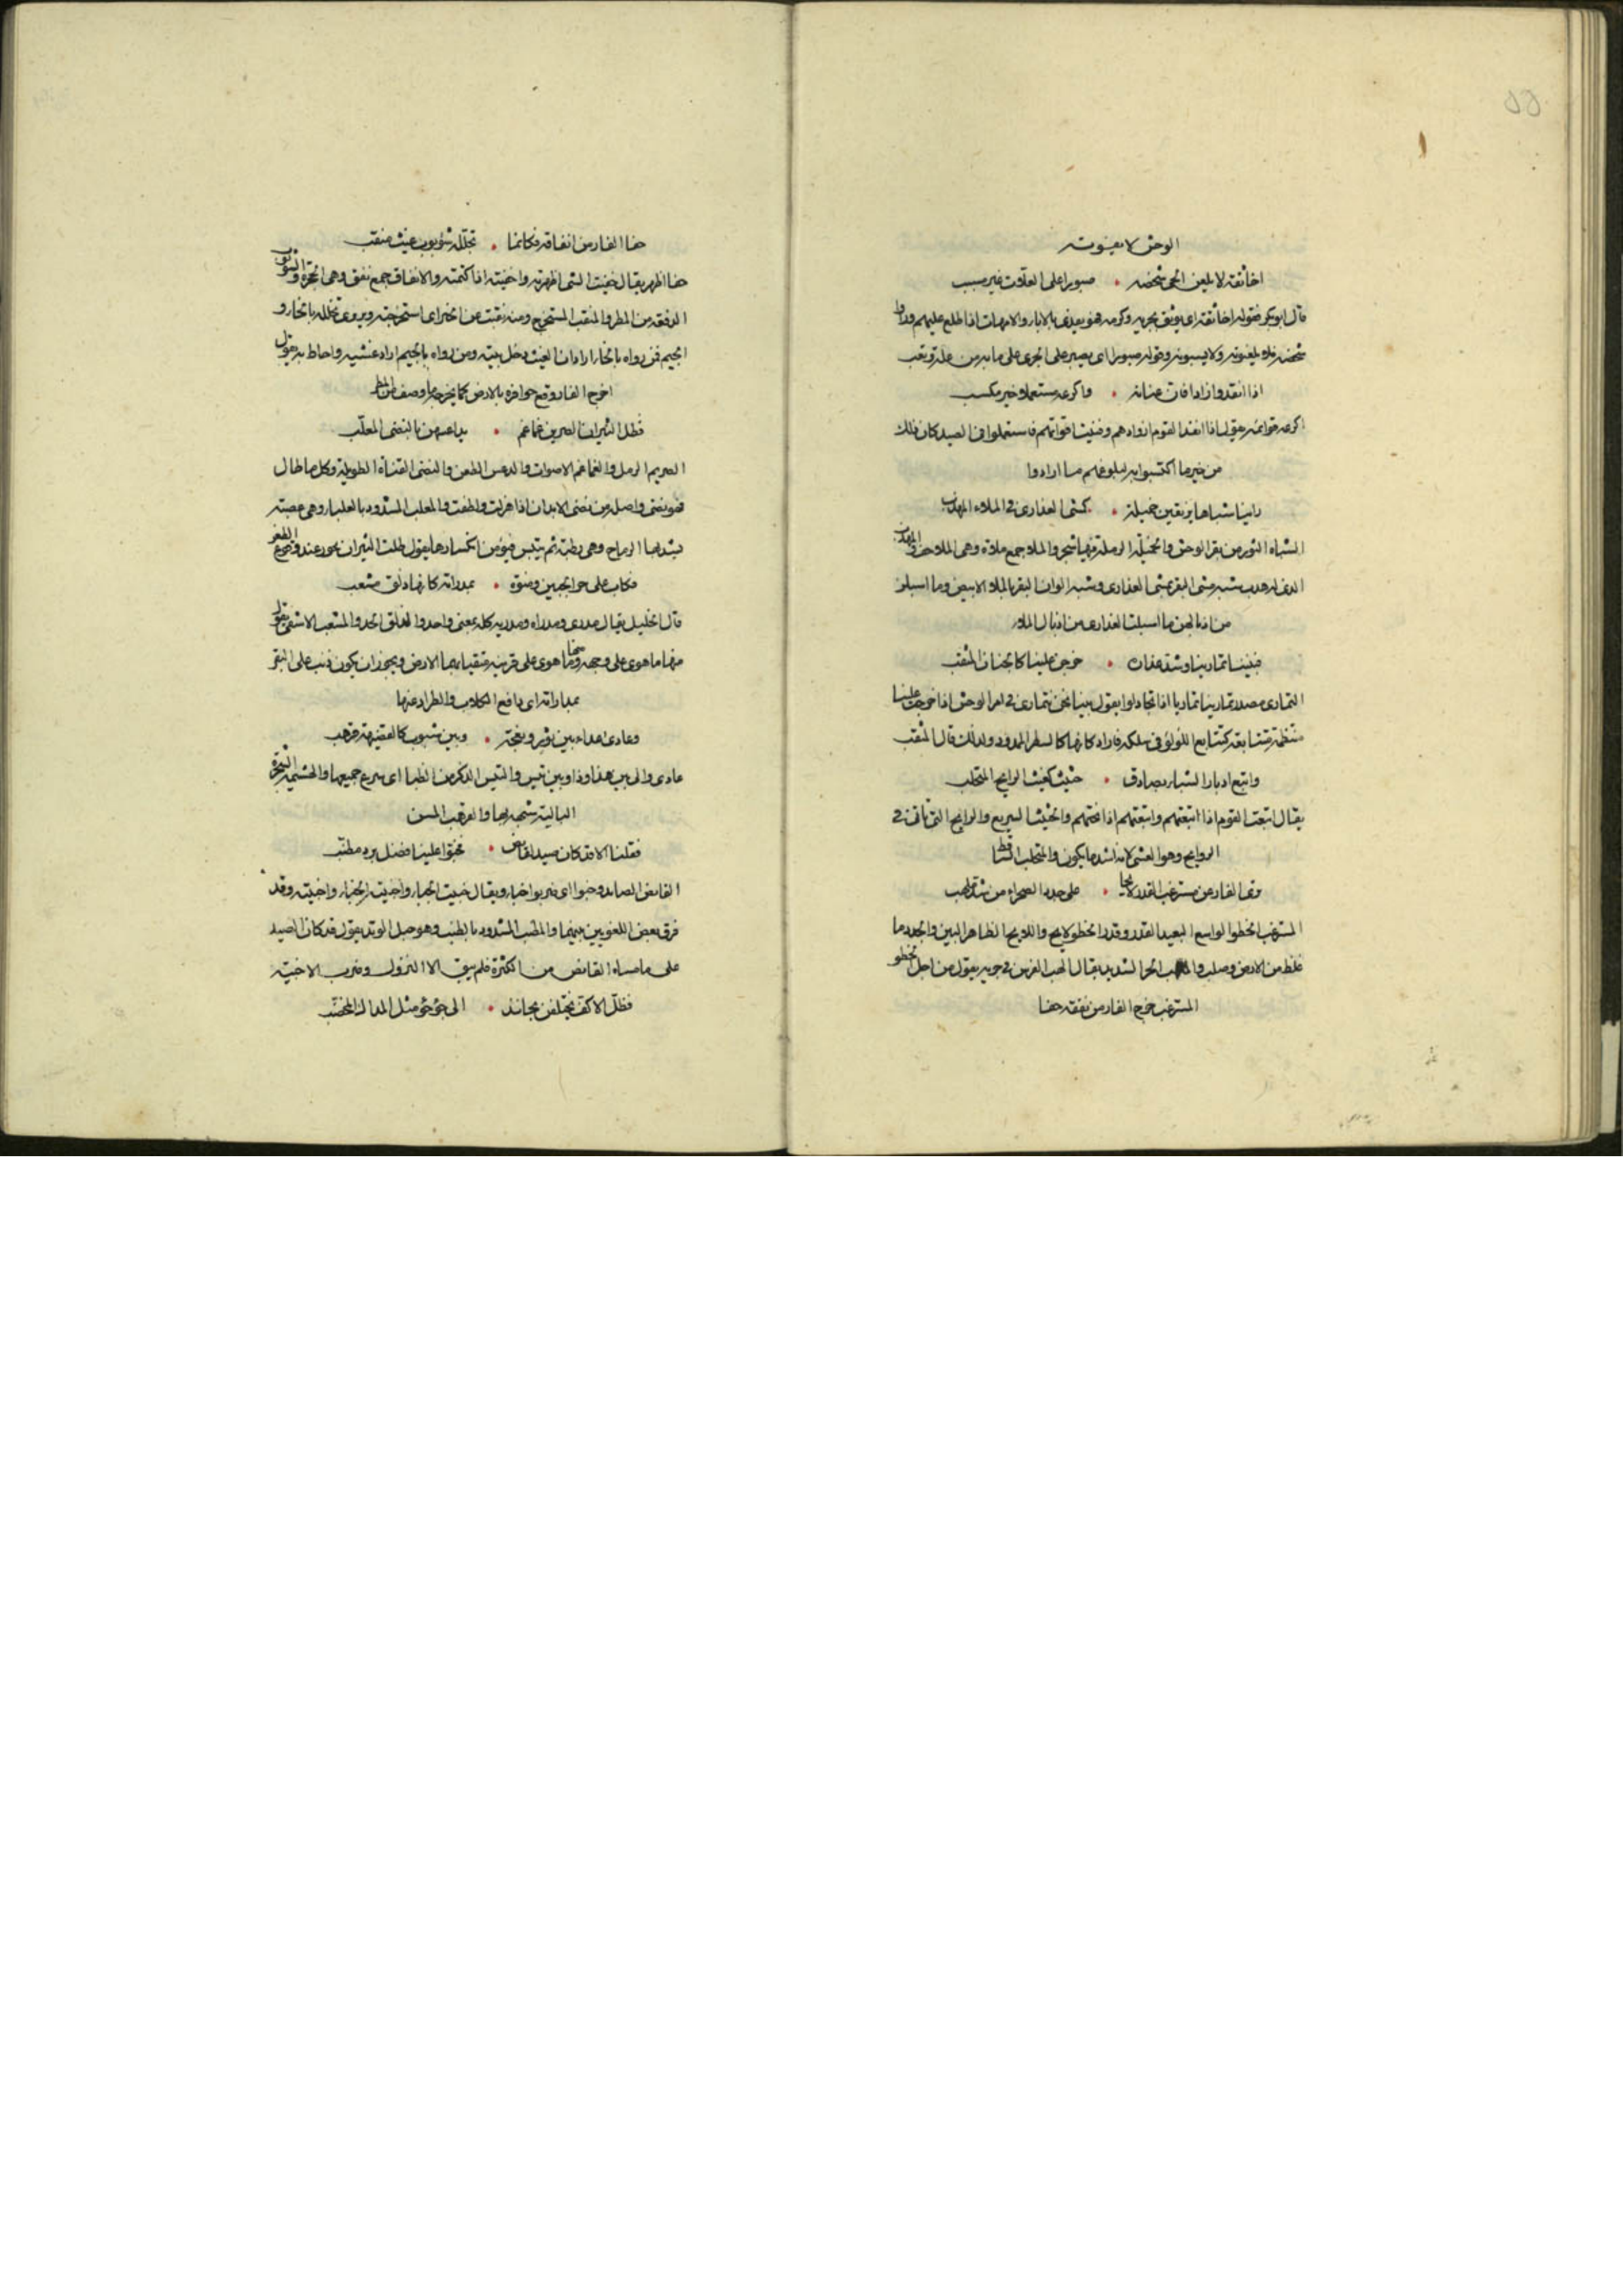 الوحش لا يفوته
اخا ثقة لا يلعن الحى شخصه • صبورا على العلات غير مسبب
قال ابو بكر قوله اخا ثقة اى يوثق بجريه وكرمه فهو يفدى بالاباء والامهات اذا طلع عليهم وراوا
شخصه فلا يلعنونه ولا يسبونه وقوله صبورا اى يصبر على الجرى على ما به من علة وتعب
اذا انفدوا زادا فان عنانه • واكرعه مستعملا خير مكسب
اكرعه قوائمه يقول اذا انفد القوم ازوادهم وفنيت اقواتهم فاستعملوا فى الصيد كان ذلك
من خير ما اكتسبوا به لبلوغهم ما ارادوا
راينا شياها يرتعين خميلة • كمشى العذارى فى الملاء المهدب
الشياه الثور من بقر الوحش والخميلة الرملة فيها شجر والملاء جمع ملاءة وهى الملاحف والمهدب
الذى له هدب شبه مشى البقر بمشى العذارى وشبه الوان البقر بالملاء الابيض وما اسبلن
من اذيالهن ما اسبلت العذارى من اذيال الملاء
فبينا تمارينا وشد عذاره • خرجن علينا كالجمان المثقب
التمارى مصدر تمارينا تماريا اذا تجادلوا يقول بينا نحن نتمارى فى امر الوحش اذا خرجت علينا
منتظمة متتابعة كتتابع اللؤلؤ فى سلكه فاراد كانها كالسطر الممدود ولذلك قال المثقب
واتبع ادبار الشياه بصادق • حثيث كغيث الرايح المتحلب
يقال اتبعت القوم اذا اتبعتهم واتبعتهم اذا لحقتهم والحثيث السريع والرايح التى تاتى فى
الرواح وهو العشى لانه اشد ما يكون والمتحلب المتساقط
ترى الفار عن مسترغب القدر لايحا • على جدد الصحراء من شد ملهب
المسترغب الخطو الواسع البعيد القدر وقدر الخطو لايح واللايح الظاهر البين والجدد ما
غلظ من الارض وصلب والملهب الجرى الشديد يقال الهب الفرس فى جريه يقول من اجل الخطو
المسترغب خرج الفار من نفقه خفا
خفا الفار من انفاقه فكانما • تجلله شؤبوب غيث منقب
خفا اظهر يقال خفيت الشى اظهرته واخفيته اذا كتمته والانفاق جمع نفق وهى الجحرة والشؤبوب
الدفقة من المطر والمنقب المستخرج ومنه نقبت عن الخبر اى استخرجته ويروى تخلله بالخاء و
الجيم فمن رواه بالخاء اراد ان الغيث دخل بيته ومن رواه بالجيم اراد غشيه واحاط به يقول
اخرج الفار وقع حوافره بالارض كما يخرجها وصف المطر
فظل لثيران الصريم غماغم • يداعسهن بالنضى المعلب
الصريم الرمل والغماغم الاصوات والدعس الطعن والنضى القناة الطويلة وكل ما طال
فهو نضى واصله من نضى الابدان اذا هزلت ولطفت والمعلب المشدود بالعلباء وهى عصبة
يشد بها الرماح وهى رطبة ثم تيبس فيؤمن انكسارها يقول ظلت الثيران تخور عند وقوع الطعن
فكاب على حر الجبين ومتق • بمدراة كانها ذلق مشعب
قال الخليل يقال مدرى ومدراة ومدرية كله بمعنى واحد والذلق الحد والمشعب الاشفى يقول
منها ما هوى على وجهه ومنها ما هوى على قرنيه متقيا بهما الارض ويجوز ان يكون ذب على البقر
بمداراته اى دافع الكلاب والطراد عنها
وعادى عداء بين ثور ونعجة • وبين شبوب كالقضيمة قرهب
عادى والى بين هذا وذا وبين تيس والتيس الذكر من الظباء اى صرع جميعها والهشيمة الشجرة
البالية شبه بها والقرهب المسن
فقلنا الا قد كان صيد لقانص • فخبوا علينا فضل برد مطنب
القانص الصايد وخبوا اى ضربوا خباء ويقال خبيت الخباء واخبيت الخباء واخبيته وقد
فرق بعض اللغويين بينهما والمطنب المشدود بالطنب وهو حبل الوتد يقول قد كان الصيد
على ما مساه القانص من الكثرة فلم يبق الا النزول وضرب الاخبية
فظل الاكف يختلفن بحانذ • الى جؤجؤ مثل المداك المخضب